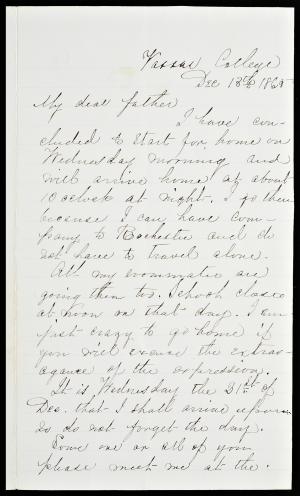 Vassar College
Dec 18th 1865
My dear father
I have con-
cluded to start for home on
Wednesday morning and
will arrive home at about
10 o'clock at night. I go then
because I can have com-
pany to Rochester and do
not have to travel alone.
All my roommates are
going then too. School closes
at noon on that day. I am
just crazy to go home if
you will excuse the extrav-
agance of the expression.
It is Wednesday the 21st of
Dec. that I shall arrive
so do not forget the day.
Some one or all of you
please meet me at the